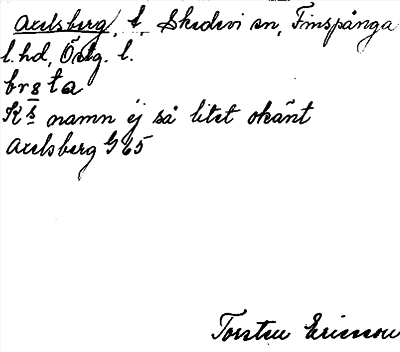 Axelsberg, t, Skedevi sn, Finspånga
l.hd, Östg. l.
brsta
K:s namn ej så litet okänt
Axelsberg G 65
Torsten Ericsson